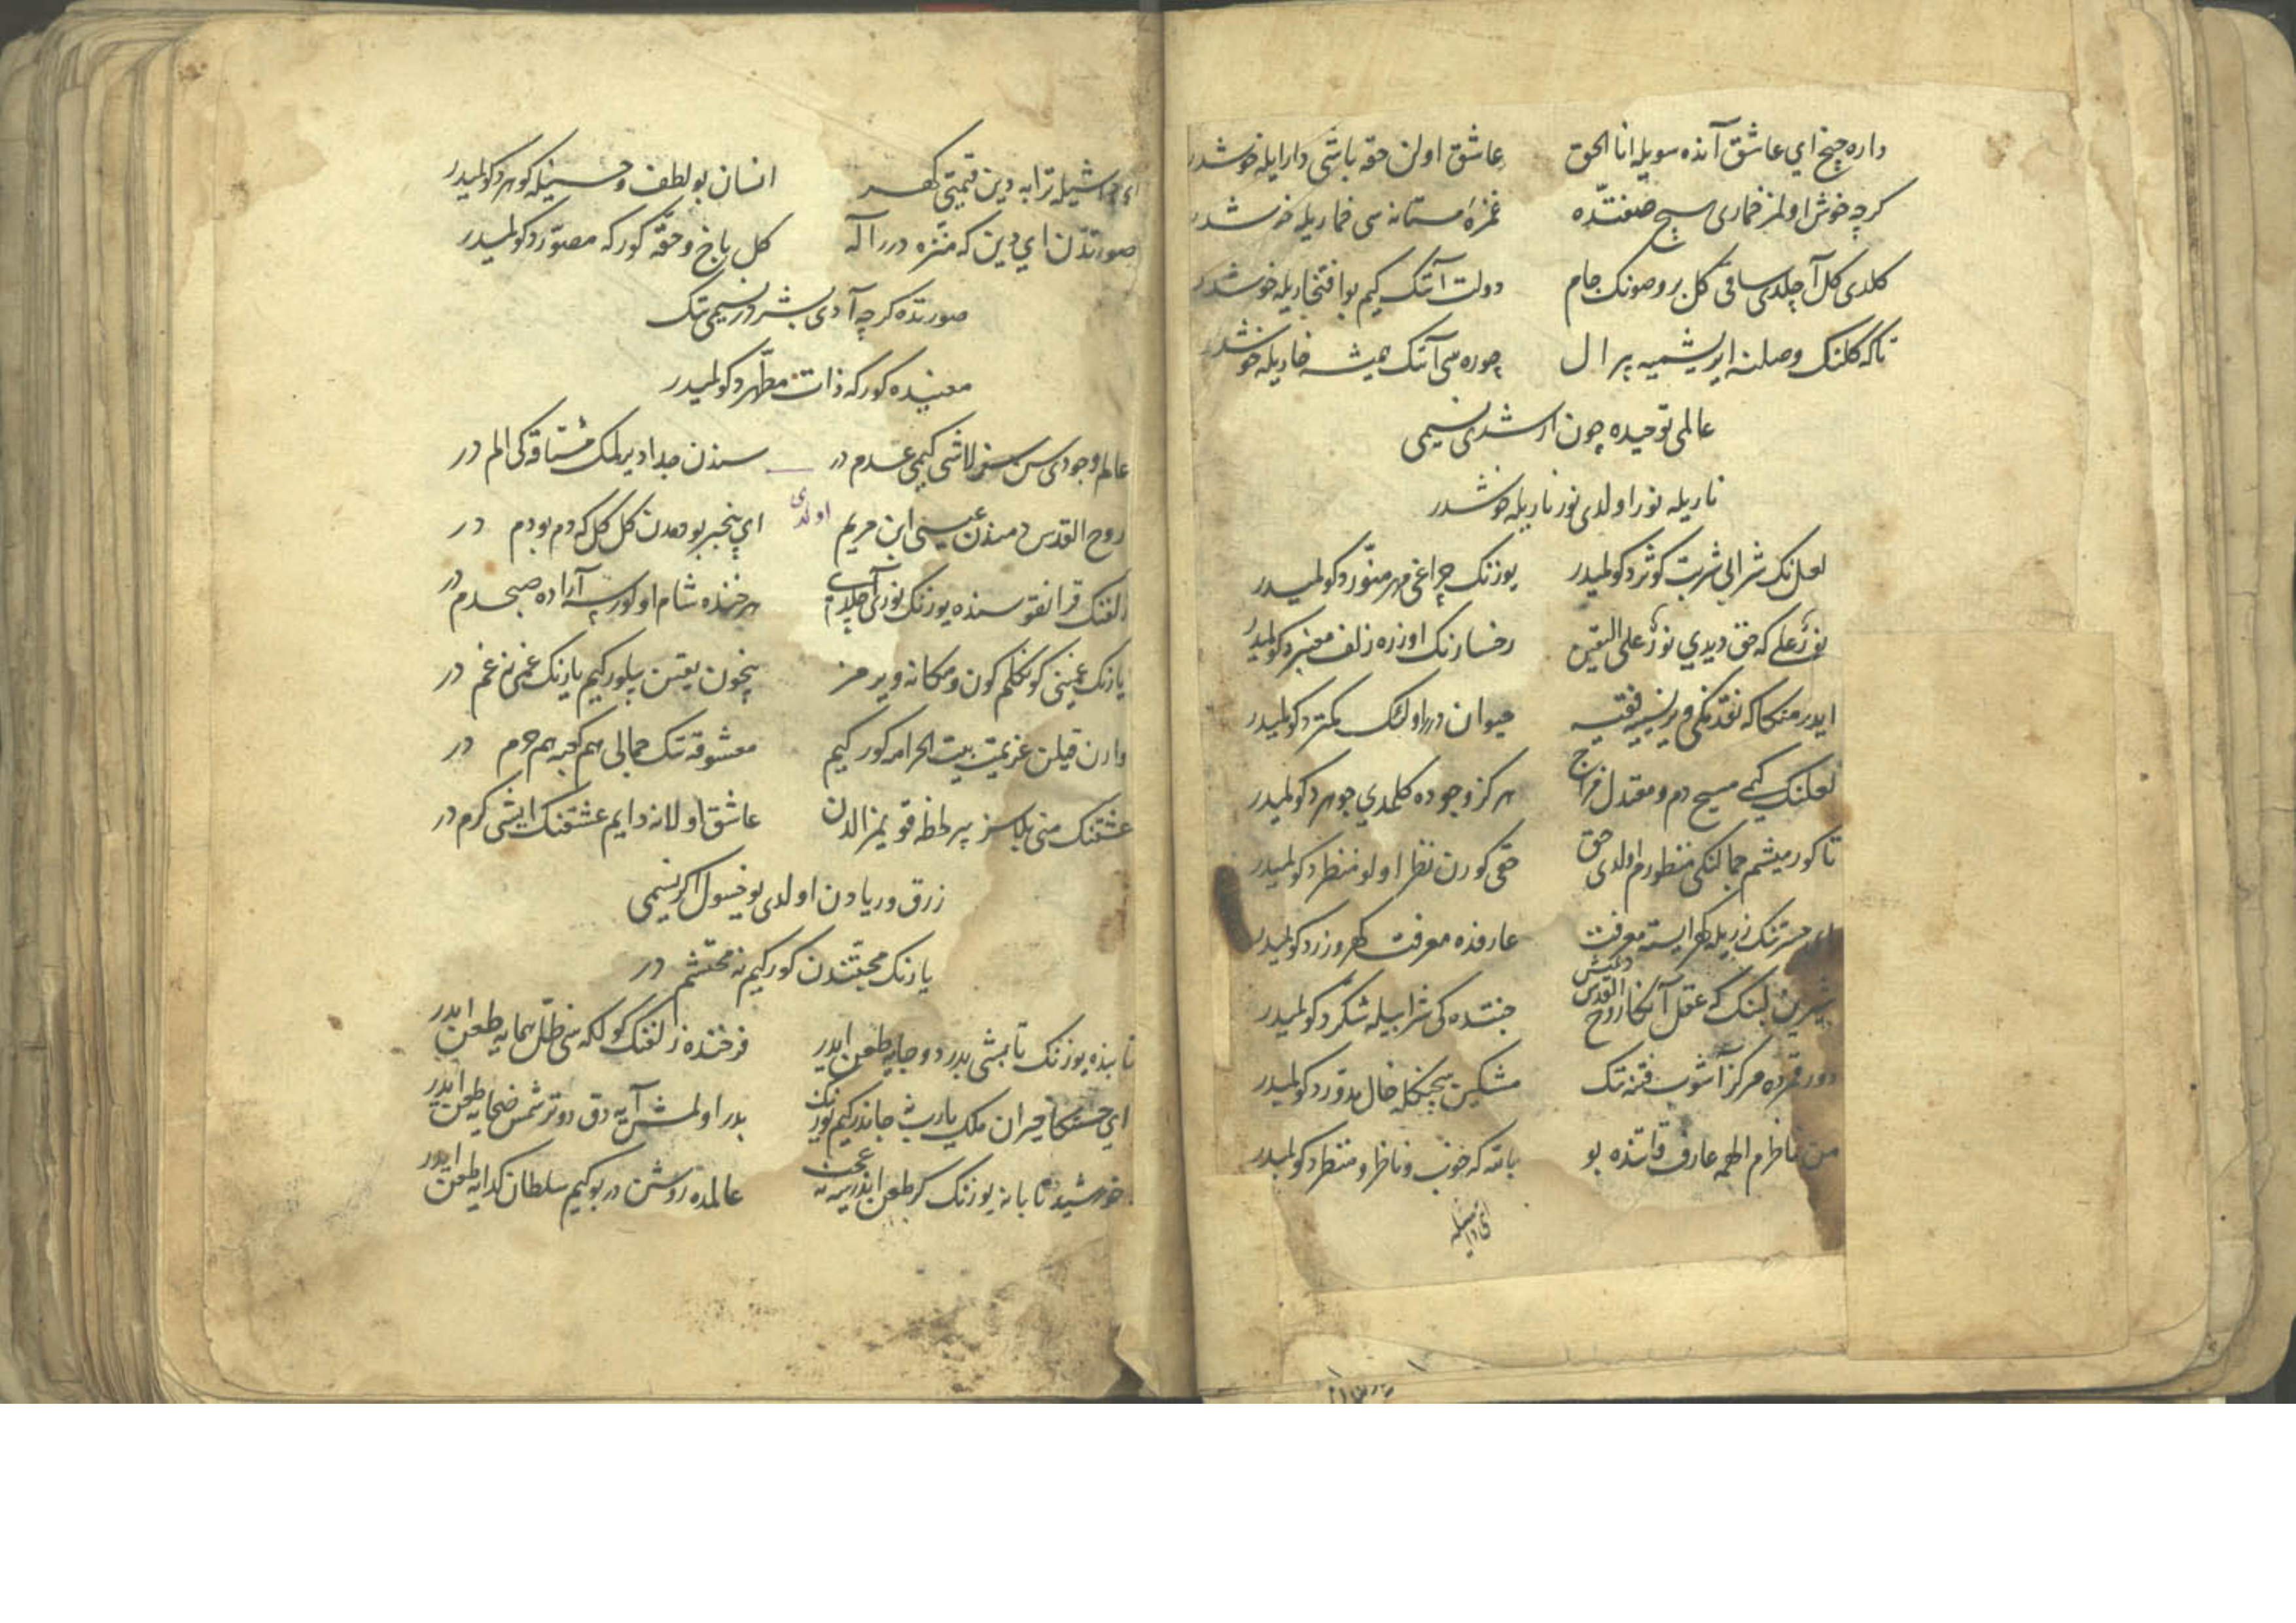 داره چیخ ای عاشق آنده سویله انا الحق عاشق اولن حقه باشی دار ایله خوشدر
کرچه خوش اولمز خماری هیچ صفتده غمزهٔ مستانه سی خماریله خوشدر
کلدی کل آچلدی ساقی کل برو صونک جام دولت آنک کیم بو افتخاریله خوشدر
تا که کلنک وصلنه ایریشمیه پر ال چوره سی آنک همیشه خاریله خوشدر
عالمی توحیده چون ارشدی نسیمی
ناریله نور اولدی نور ناریله خوشدر
لعلنک شرابی شربت کوثر دکولمیدر یوزنک چراغی مهر منوّر دکولمیدر
نورٌ علی که حق دیدی نورٌ علی الیقین رخسارنک اوزره زلف معنبر دکولمیدر
ایدر منکا که نقدنکی ویر نسییه فقیه حیوان درر اولنک کمتر دکولمیدر
لعلنک کیمی مسیح دم و معتدل مزاج هرکز وجوده کلمدی جوهر دکولمیدر
تا کورمیشم جمالنکی منظورم اولدی حق حقی کورن نظر اولو منظر دکولمیدر
زریله کهر ایسته معرفت عارفده معرفت کهر و زر دکولمیدر
شیرین لبنک که عقل آنکا روح القدس دیمش جنتده کی شرابیله شکّر دکولمیدر
دور قمرده مرکز آشوب فتنه تک مشکین بیچنکله خال مدوّر دکولمیدر
من ناظرم الهمه عارف قاتنده بو بالله که خوب و ناظر و منظر دکولمیدر
ترابه دین قیمتی کهر انسان بو لطف و حسنیله کوهر دکولمیدر
صورتدن ای دین که منزّه درر اله کل باخ و حقّه کور که مصوّر دکولمیدر
صورتده کرچه آدی بشردر نسیمی تک
معنیده کور که ذات مطهّر دکولمیدر
عالم وجودی سن سز لاشی کیمی عدم در سندن جدا دیرلمک مشتاقه کی الم در
روح القدس دمندن عیسی ابن مریم اولدی ای بیخبر بو دمدن کل کل که دم بو دم در
زلفنک قرانقوسنده یوزنک نوری آچلدی هر خنده شام اولور سه آراده صبحدم در
یارنک غمینی کونکلم کون و مکانه ویرمز بیچون یقین بیلور کیم یارنک غمی نه غم در
وارن قیلن عزیمت بیت الحرامه کور کیم معشوقه تک جمالی هم کعبه هم حرم در
عشقنک منی بلاسز بیر لحظه قویمز الدن عاشق اولانه دایم عشقنک ایشی کرم در
زرق و ریادن اولدی یوخسول اکر نسیمی
یارنک محبتندن کور کیم نه محتشم در
تابنده یوزنک تابشی بدر دوجایه طعن ایدر فرخنده زلفنک کولکه سی ظلّ همایه طعن ایدر
ای حسنکا حیران ملک یا رب نه جاندر کیم یوزنک بدر اولمش آیه دق دوتر شمس ضحایه طعن ایدر
خورشید تابانه یوزنک کر طعن ایدر سه نه عجب عالمده روشن در بو کیم سلطان کدایه طعن ایدر